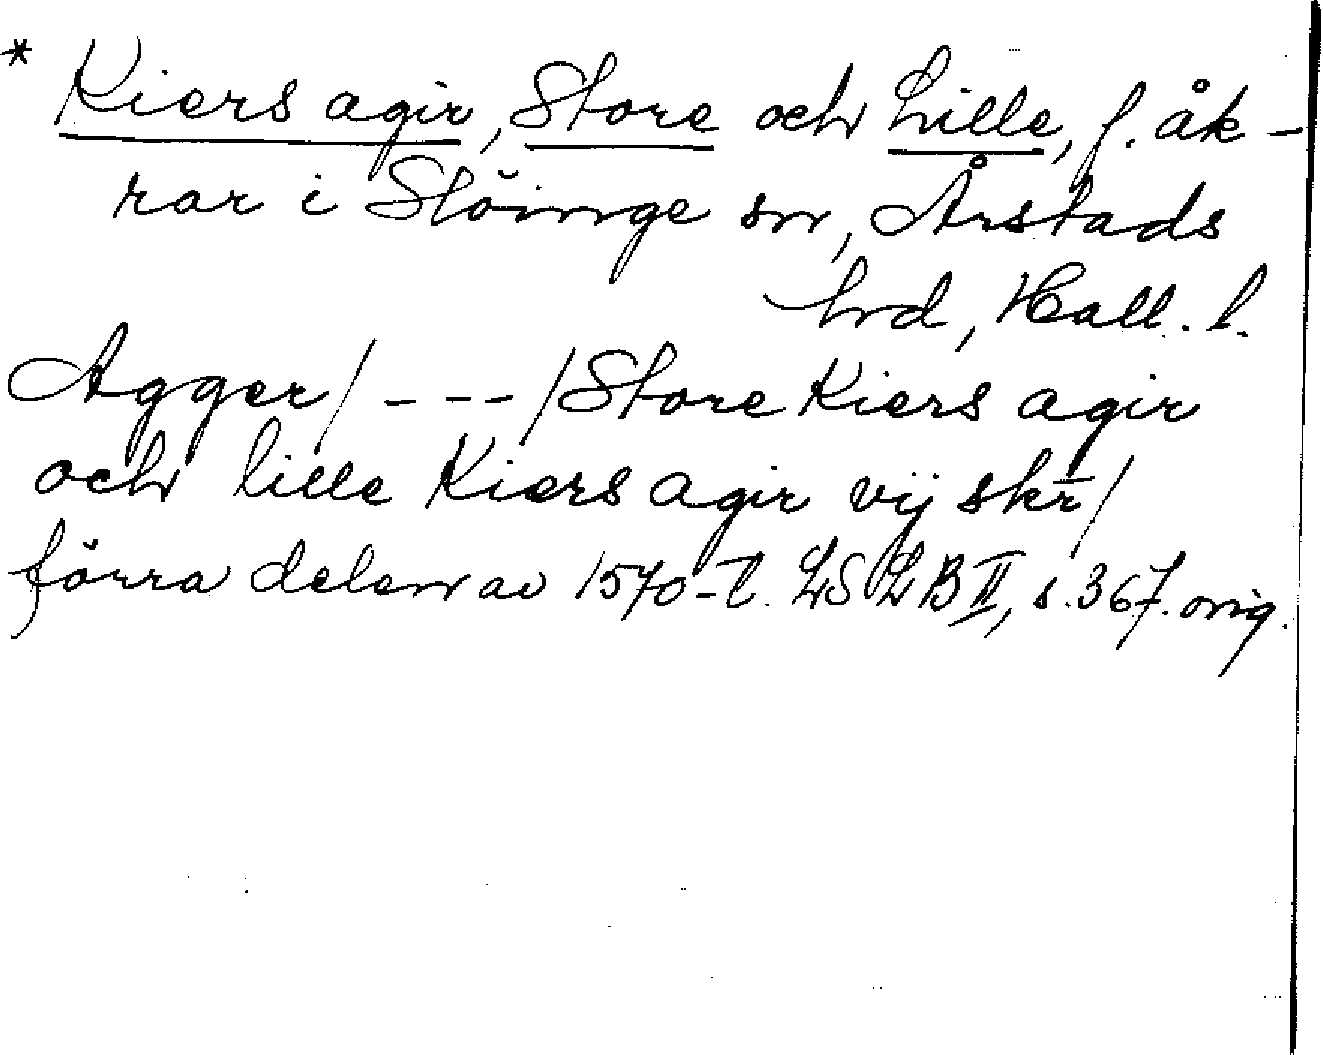 * Kiers agir, Store och Lille, f. åk-
rar i Slöinge sn, Årstads
hrd, Hall. l.
Agger/---/Store Kiers agir
och lille Kiers agir vij skr/
förra delen av 1570-t. LSLB II, s. 367. orig.